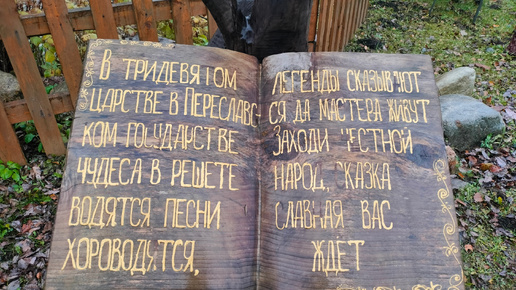 В ТРИДЕВЯТОМ
ЦАРСТВЕ В ПЕРЕСЛАВС-
КОМ ГОСУДАРСТВЕ
ЧУДЕСА В РЕШЕТЕ
ВОДЯТСЯ ПЕСНИ
ХОРОВОДЯТСЯ,
ЛЕГЕНДЫ СКАЗЫВАЮТ
СЯ ДА МАСТЕРА ЖИВУТ
ЗАХОДИ ЧЕСТНОЙ
НАРОД, СКАЗКА
СЛАВНАЯ ВАС
ЖДЁТ